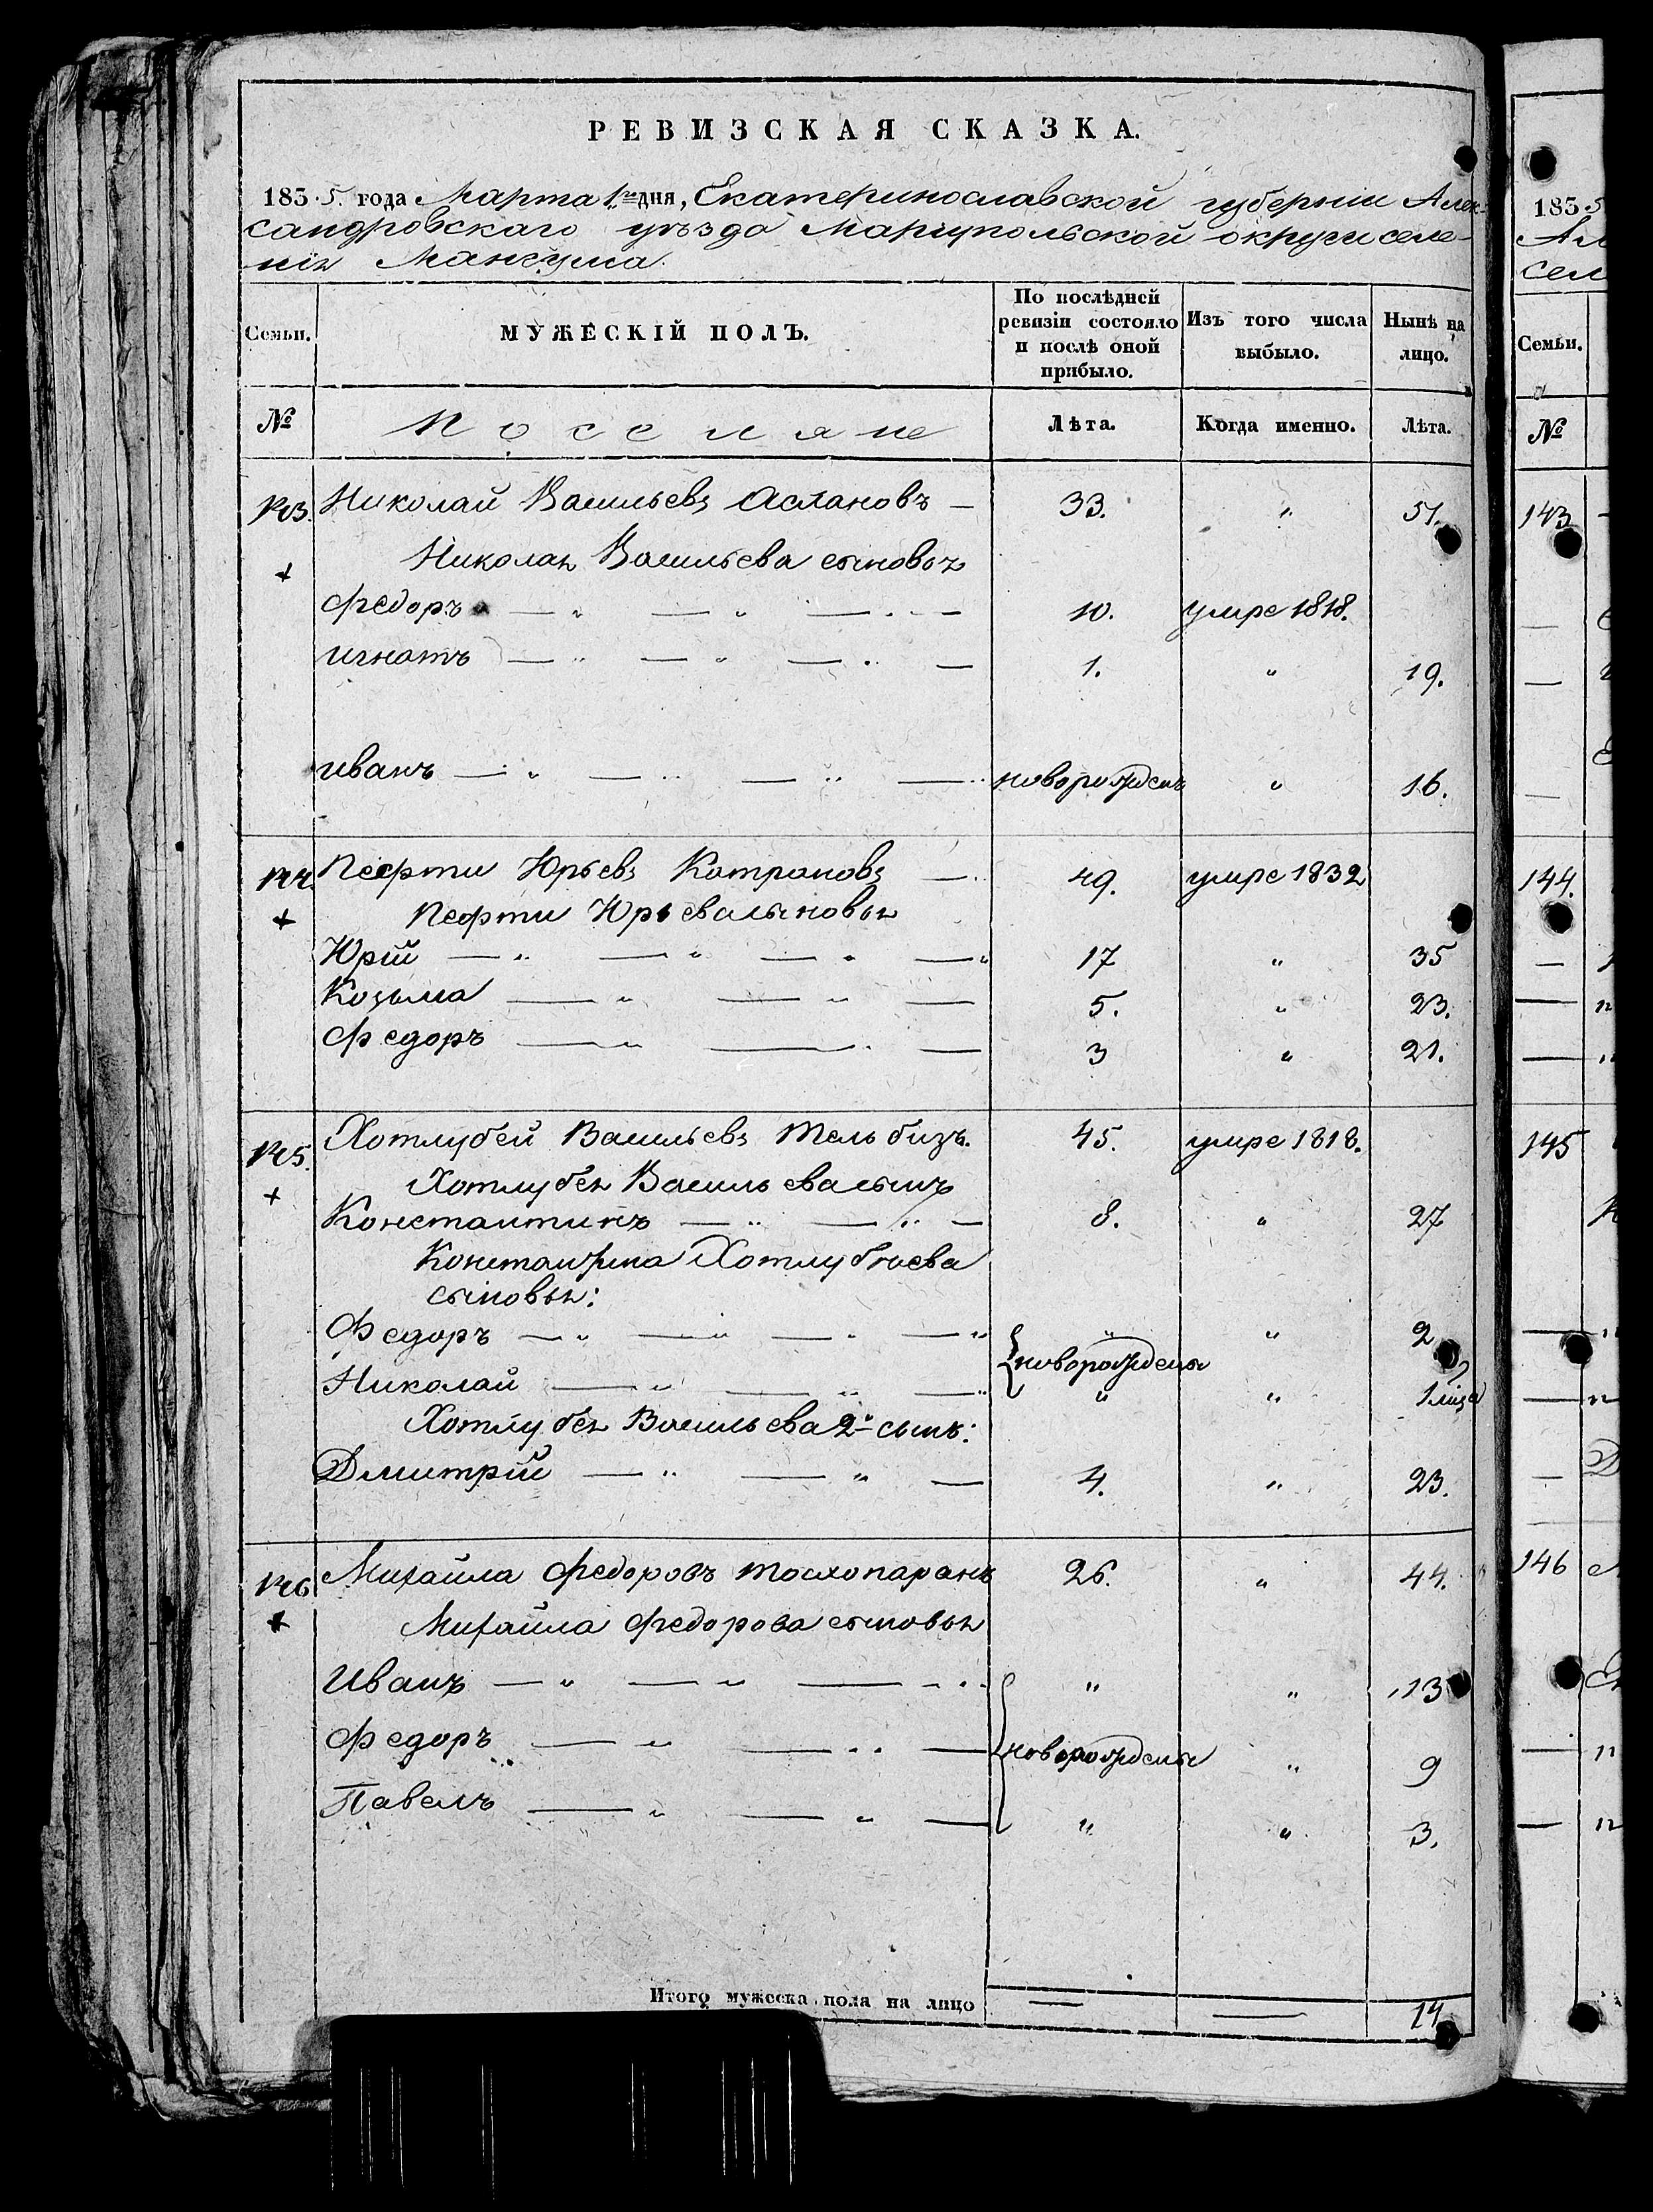 РЕВИЗСКАЯ СКАЗКА.
1835. года Марта 1го дня, Екатеринославской губерніи Алек-
сандровскаго уѣзда Маріупольской округи селе-
нія Мангуша.
Семьи. МУЖЕСКІЙ ПОЛЪ. По послѣдней ревизіи состояло и послѣ оной прибыло. Изъ того числа выбыло. Нынѣ на лицо.
№ Поселяне Лѣта. Когда именно. Лѣта.
143. Николай Васильевъ Аслановъ — 33. " 51.
Николая Васильева сыновья
Федоръ — " — " — " — 10. умре 1818.
Игнатъ — " — " — " — 1. " 19.
Иванъ — " — " — " — новорожденъ " 16.
144. Пефти Юрьевъ Катрановъ — 49. умре 1832
Пефти Юрьева сыновья
Юрій — " — " — " — " 17 " 35
Козьма — " — " — 5. " 23.
Федоръ — " — " — 3 " 21.
145. Хотлубей Васильевъ Тельбизъ. 45. умре 1818.
Хотлубея Васильева сынъ
Константинъ — " — " — 8. " 27
Константина Хотлубѣева
сыновья:
Федоръ — " — " — " — " " " 2
новорожденые
Николай — " — " — " " " 1 мѣся
Хотлубея Васильева 2й сынъ:
Дмитрій — " — " — 4. " 23.
146 Михайла Федоровъ Тосхопаранъ 26. " 44.
Михайла Федорова сыновья
Иванъ — " — " — " " " 13
Федоръ — " — " — новорожденые " 9
Павелъ — " — " — " " 3.
Итого мужеска пола на лицо — — 14
1835
Ал
сел
Семьи.
№
143
144.
145
146